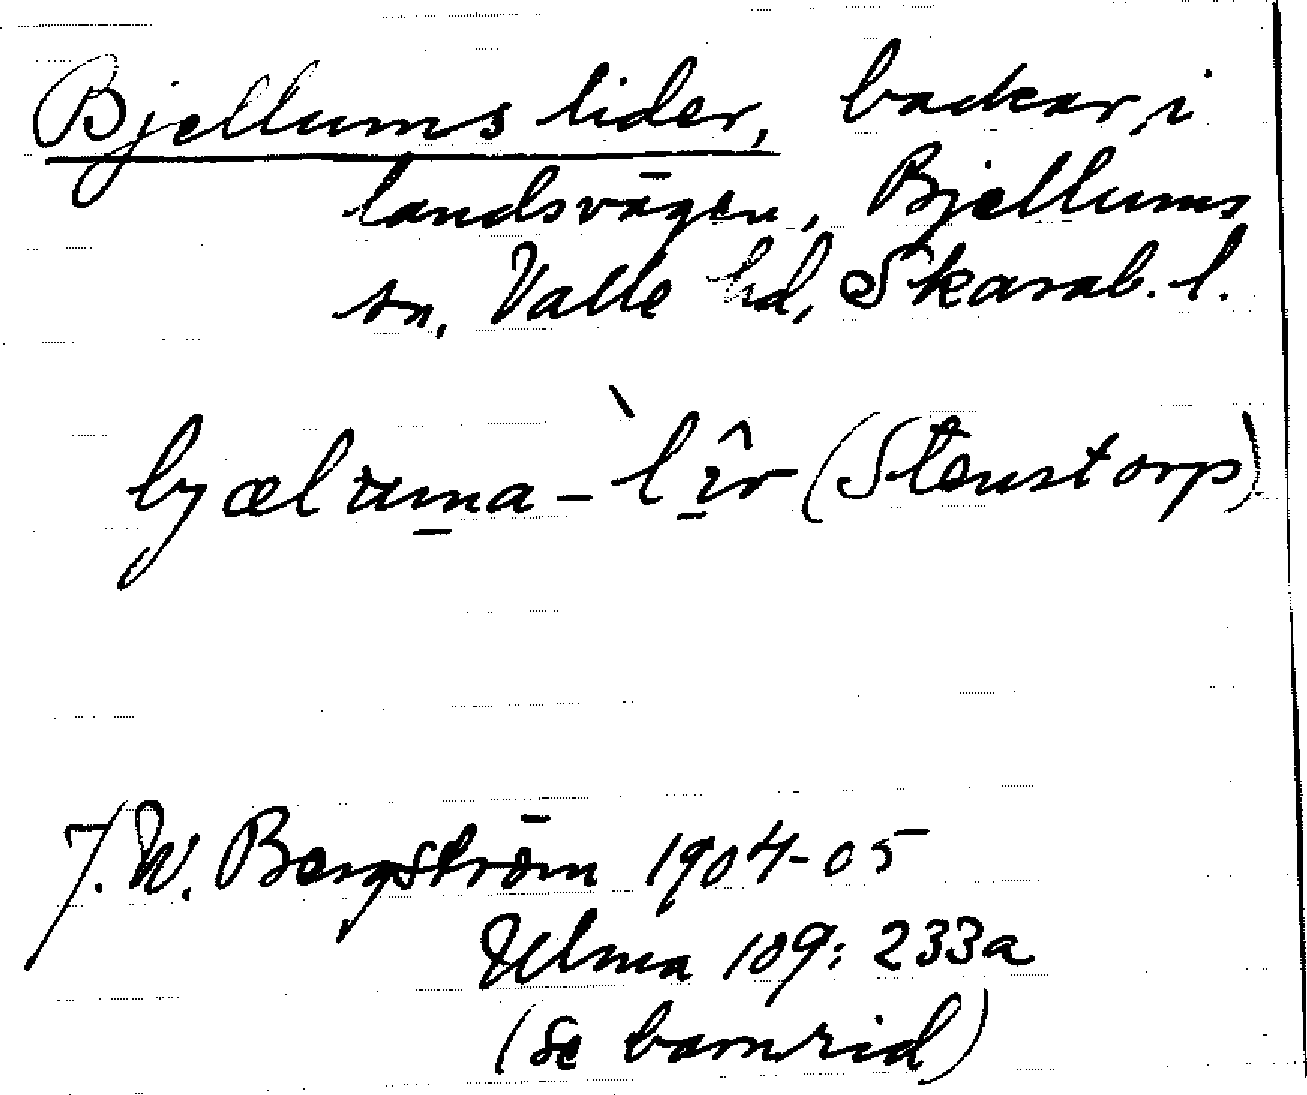 Bjellums lider, backar i
landsvägen, Bjellums
sn, Valle hd, Skarab. l.
bjæluma - lîr (Stenstorp)
J. W. Bergström 1904-05
Ulma 109: 233a
(Se barnrid)